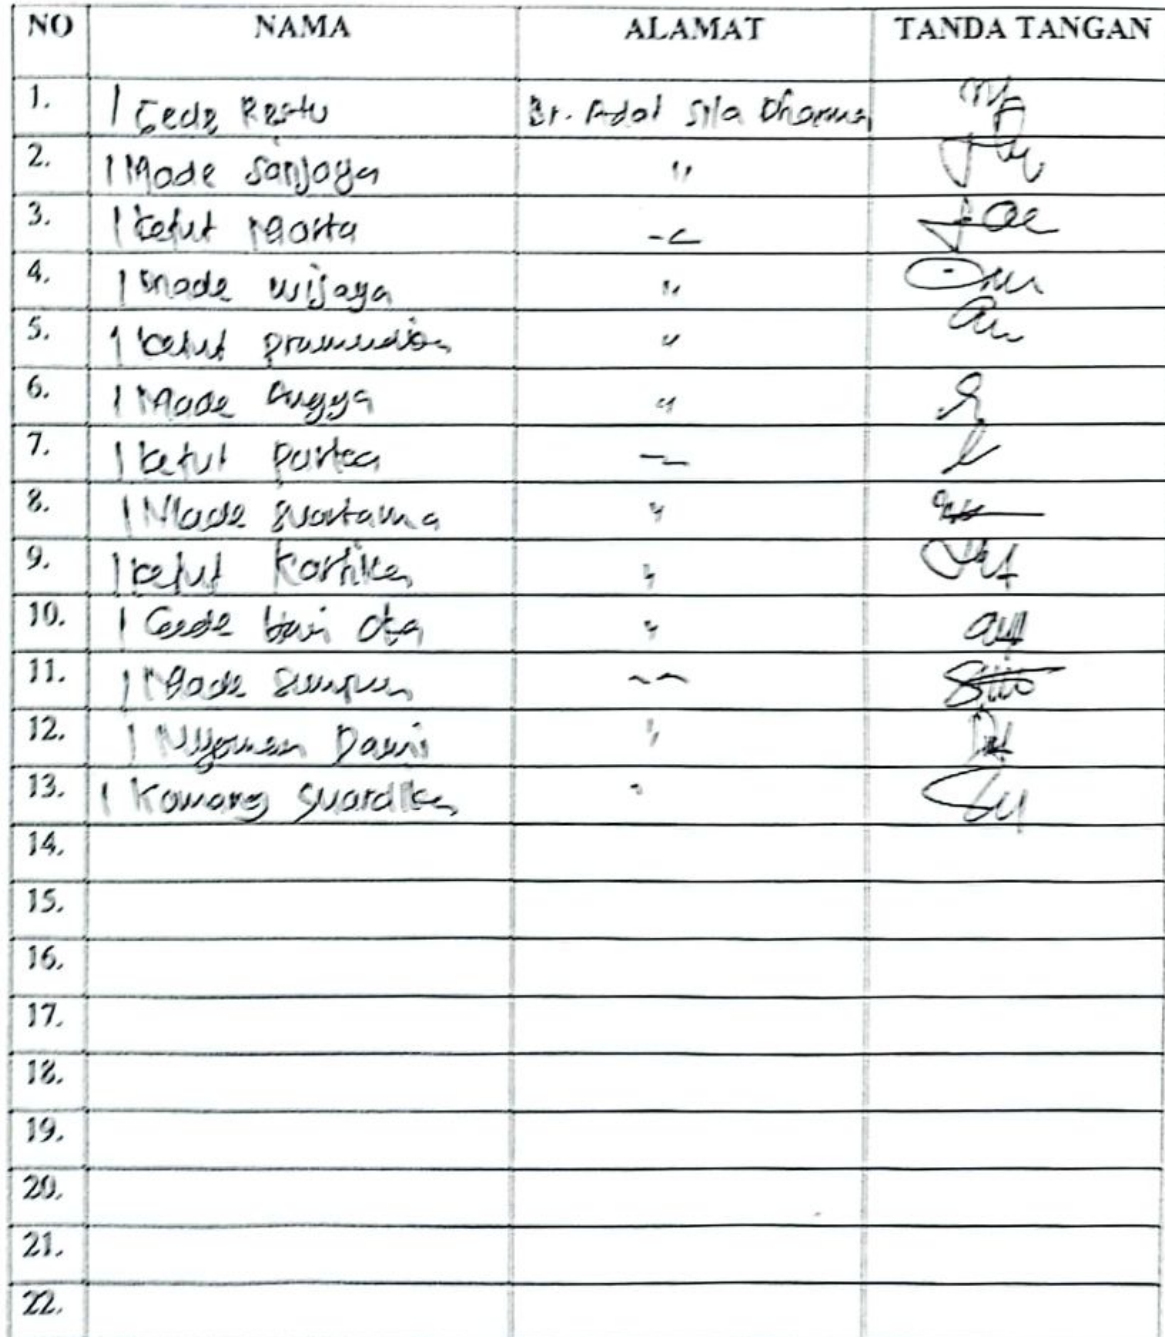 NO NAMA ALAMAT TANDA TANGAN
1. I Gede Restu Br. Adat Sila Dharma
2. I Made Sanjaya "
3. I Ketut Marta
4. I Made Wijaya "
5. I Ketut Pramudia "
6. I Made Angga "
7. I Ketut Partea
8. I Made Suartama "
9. I Ketut Kartika "
10. I Gede "
11. I Made
12. I Nyoman Dawi "
13. I Komang Suardika "
14.
15.
16.
17.
18.
19.
20.
21.
22.